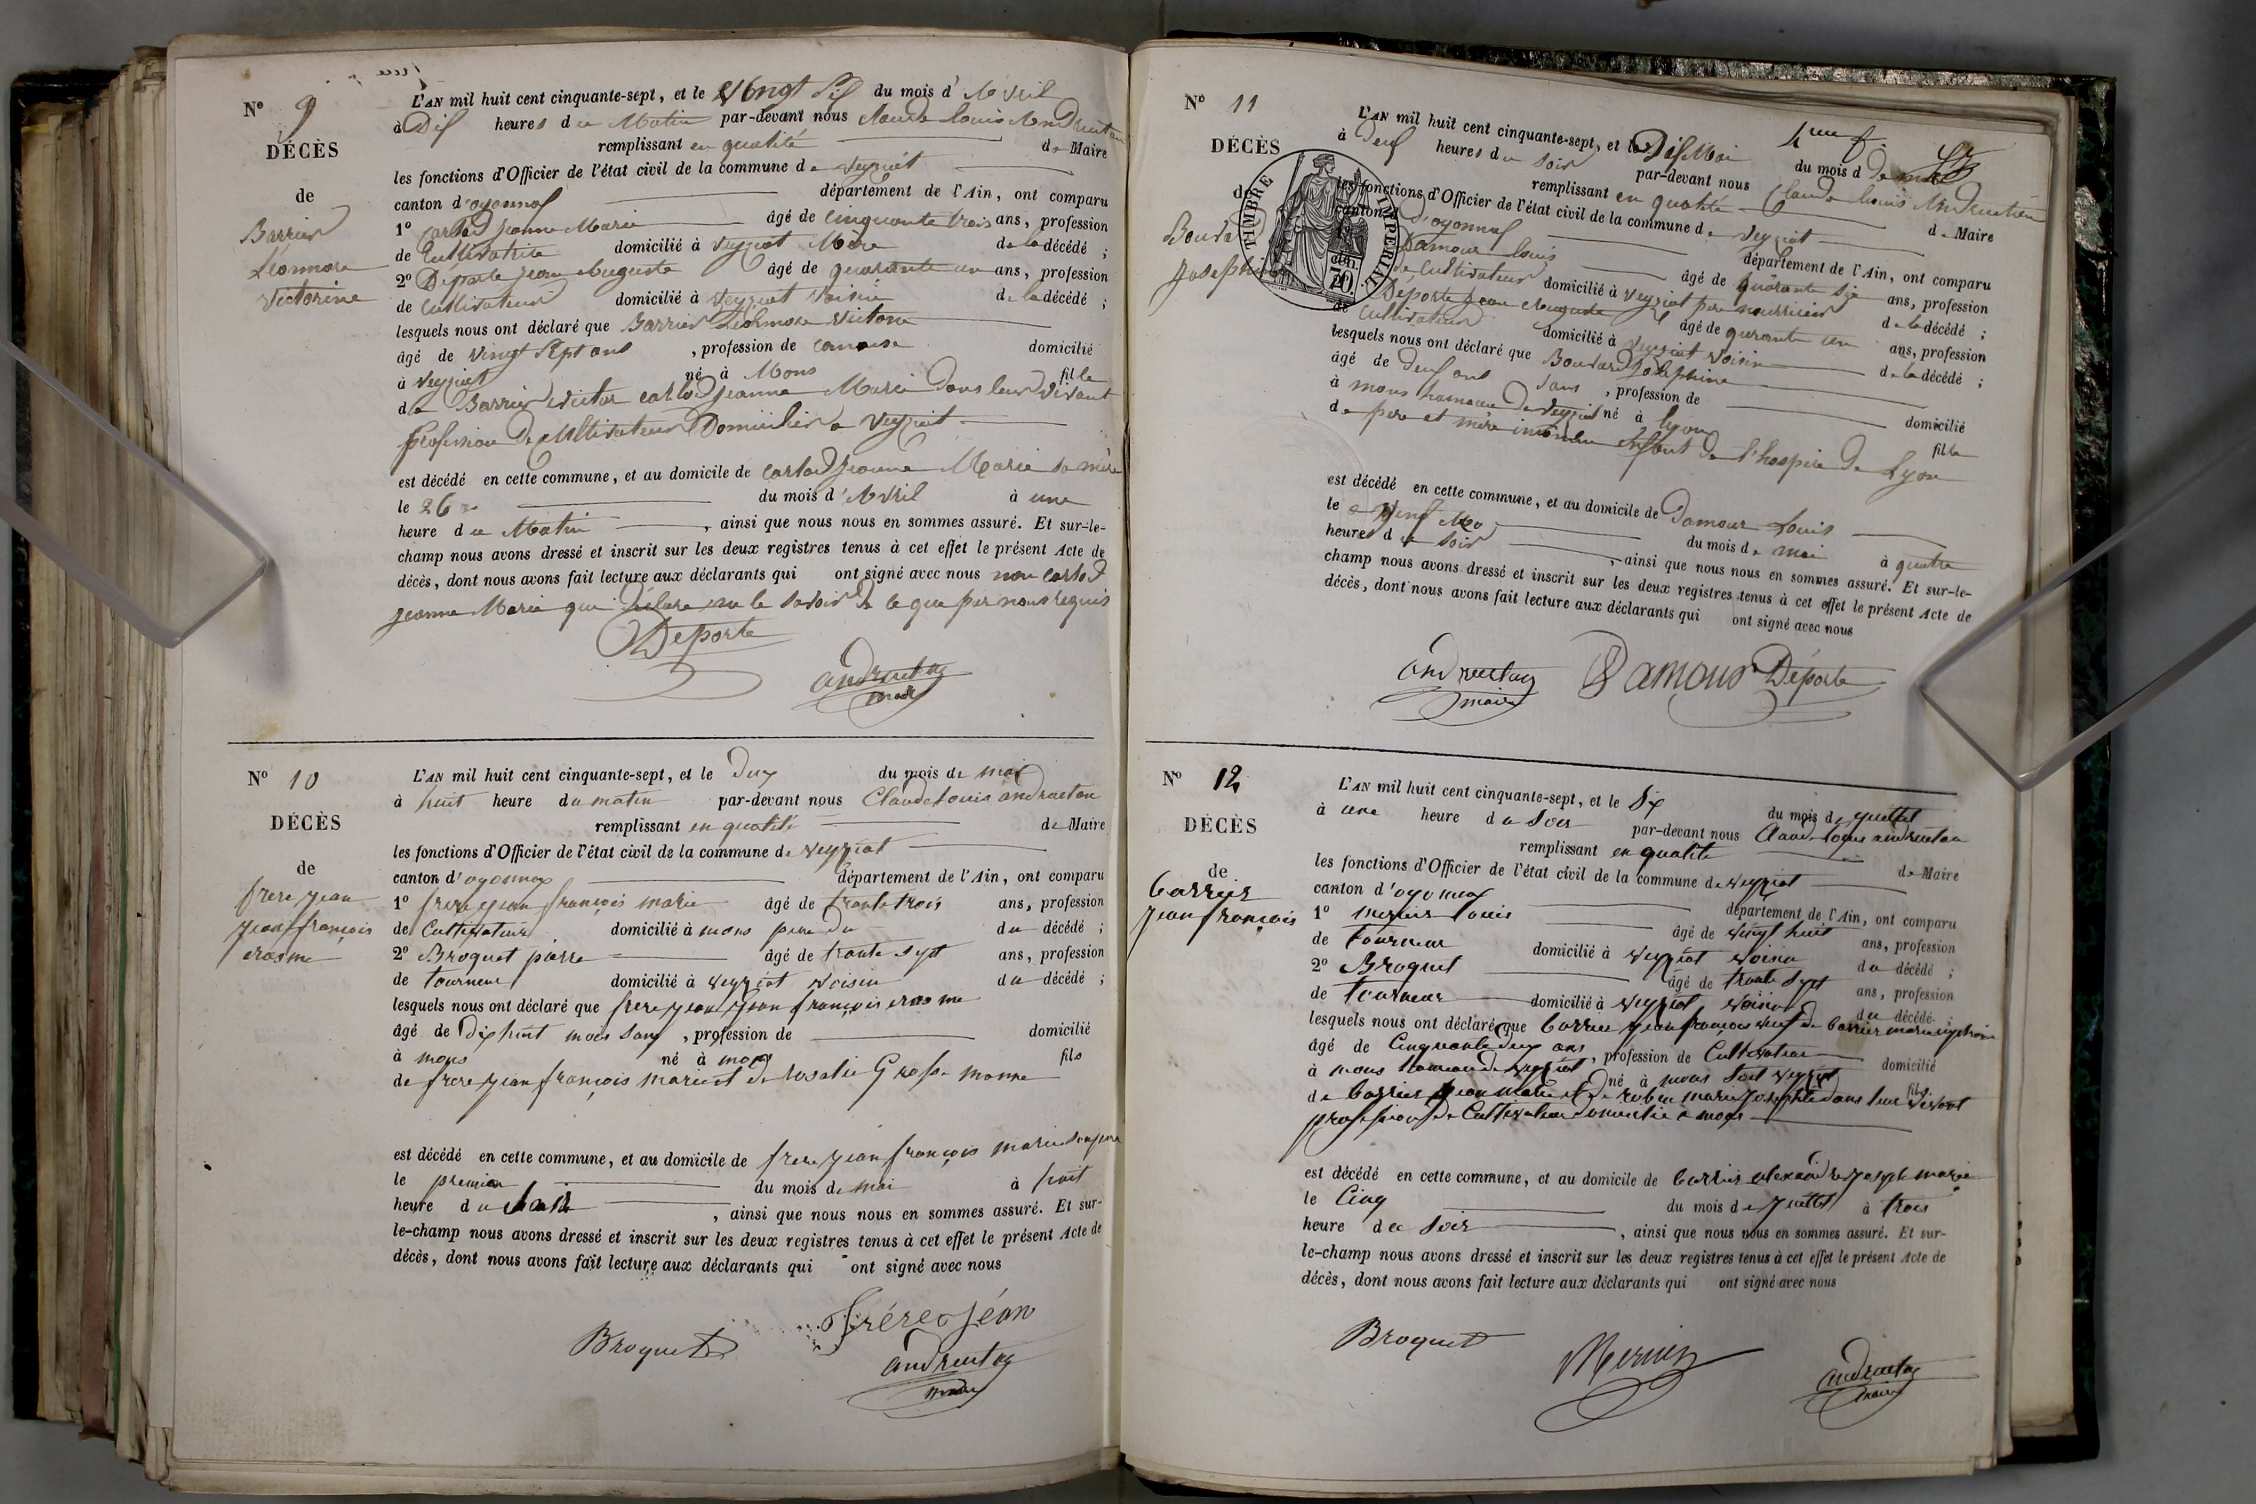 N° 9
DÉCÈS
de
Barrier
Léonnore
Victorine
L'AN mil huit cent cinquante-sept, et le Vingt Six du mois d'Avril
à Dix heures du Matin par-devant nous Claude Louis Andruetan
remplissant en qualité de Maire
les fonctions d'Officier de l'état civil de la commune de Veyziat
canton d'oyonnax département de l'Ain, ont comparu
1° Jeanne Marie âgé de Cinquante trois ans, profession
de Cultivatrice domicilié à Veyziat Mère de la décédé ;
2° Déporte Jean Auguste âgé de quarante un ans, profession
de Cultivateur domicilié à Veyziat Voisin de la décédé ;
lesquels nous ont déclaré que Barrier Léonnore Victorine
âgé de Vingt Sept ans , profession de domicilié
à Veyziat né à Mons fille
de Barrier Victor Jeanne Marie Dans leur Vivant
profession De Cultivateur Domicilier a Veyziat
est décédé en cette commune, et au domicile de Jeanne Marie sa mère
le 26 du mois d'Avril à une
heure du Matin , ainsi que nous nous en sommes assuré. Et sur-le-
champ nous avons dressé et inscrit sur les deux registres tenus à cet effet le présent Acte de
décès, dont nous avons fait lecture aux déclarants qui ont signé avec nous non
Jeanne Marie qui Déclare ne le Savoir de ce que par nous requis
Déporte
andruetan
maire
N° 10
DÉCÈS
de
frere jean
jean françois
erasme
L'AN mil huit cent cinquante-sept, et le Deux du mois de mai
à huit heure du matin par-devant nous Claude Louis andruetan
remplissant en qualité de Maire
les fonctions d'Officier de l'état civil de la commune de Veyziat
canton d'oyonnax département de l'Ain, ont comparu
1° frere jean françois marie âgé de trante trois ans, profession
de Cultivateur domicilié à mons pere du du décédé ;
2° Broquet pierre âgé de trante sept ans, profession
de tourneur domicilié à Veyziat Voisin du décédé ;
lesquels nous ont déclaré que frere jean jean françois erasme
âgé de Dix huit mois sans , profession de domicilié
à mons né à mons fils
de frere jean françois marie et de rosalie
est décédé en cette commune, et au domicile de frere jean françois marie son pere
le premier du mois de mai à huit
heure du soir , ainsi que nous nous en sommes assuré. Et sur-
le-champ nous avons dressé et inscrit sur les deux registres tenus à cet effet le présent Acte de
décès, dont nous avons fait lecture aux déclarants qui ont signé avec nous
Broquet
frére Jéan
andruetan
maire
N° 11
DÉCÈS
de
Josephine
TIMBRE IMPERIAL
L'AN mil huit cent cinquante-sept, et le Dix Mai du mois de mai
à Deux heures du Soir par-devant nous Claude Louis Andruetan
remplissant en qualité de Maire
les fonctions d'Officier de l'état civil de la commune de Veyziat
canton d'oyonnax département de l'Ain, ont comparu
Damour Louis âgé de quarante six ans, profession
de Cultivateur domicilié à Veyziat pere nourricier de la décédé ;
Déporte Jean Auguste âgé de quarante un ans, profession
de Cultivateur domicilié à Veyziat Voisin de la décédé ;
lesquels nous ont déclaré que Josephine
âgé de Deux ans sans , profession de domicilié
à mons hameau de Veyziat né à Lyon fille
de pere et mère inconnu Enfant de l'hospice de Lyon
est décédé en cette commune, et au domicile de Damour Louis
le neuf du mois de mai à quatre
heures du soir , ainsi que nous nous en sommes assuré. Et sur-le-
champ nous avons dressé et inscrit sur les deux registres tenus à cet effet le présent Acte de
décès, dont nous avons fait lecture aux déclarants qui ont signé avec nous
andruetan
maire
Damour Déporte
N° 12
DÉCÈS
de
barrier
jean françois
L'AN mil huit cent cinquante-sept, et le Six du mois de Juillet
à une heure du Soir par-devant nous Claude Louis andruetan
remplissant en qualité de Maire
les fonctions d'Officier de l'état civil de la commune de Veyziat
canton d'oyonnax département de l'Ain, ont comparu
1° mernier Louis âgé de vingt huit ans, profession
de tourneur domicilié à Veyziat Voisin du décédé ;
2° Broquet âgé de trante sept ans, profession
de tourneur domicilié à Veyziat Voisin du décédé ;
lesquels nous ont déclaré que barrier jean françois veuf de barrier marie
âgé de Cinquante deux ans , profession de Cultivateur domicilié
à mons hameau de Veyziat né à mons Veyziat fils
de barrier jean marie et de robin marie Josephte dans leur vivant
profession de Cultivateur domicilié a mons
est décédé en cette commune, et au domicile de barrier alexandre joseph marie
le Cinq du mois de Juillet à trois
heure du Soir , ainsi que nous nous en sommes assuré. Et sur-
le-champ nous avons dressé et inscrit sur les deux registres tenus à cet effet le présent Acte de
décès, dont nous avons fait lecture aux déclarants qui ont signé avec nous
Broquet
Mernier
andruetan
maire